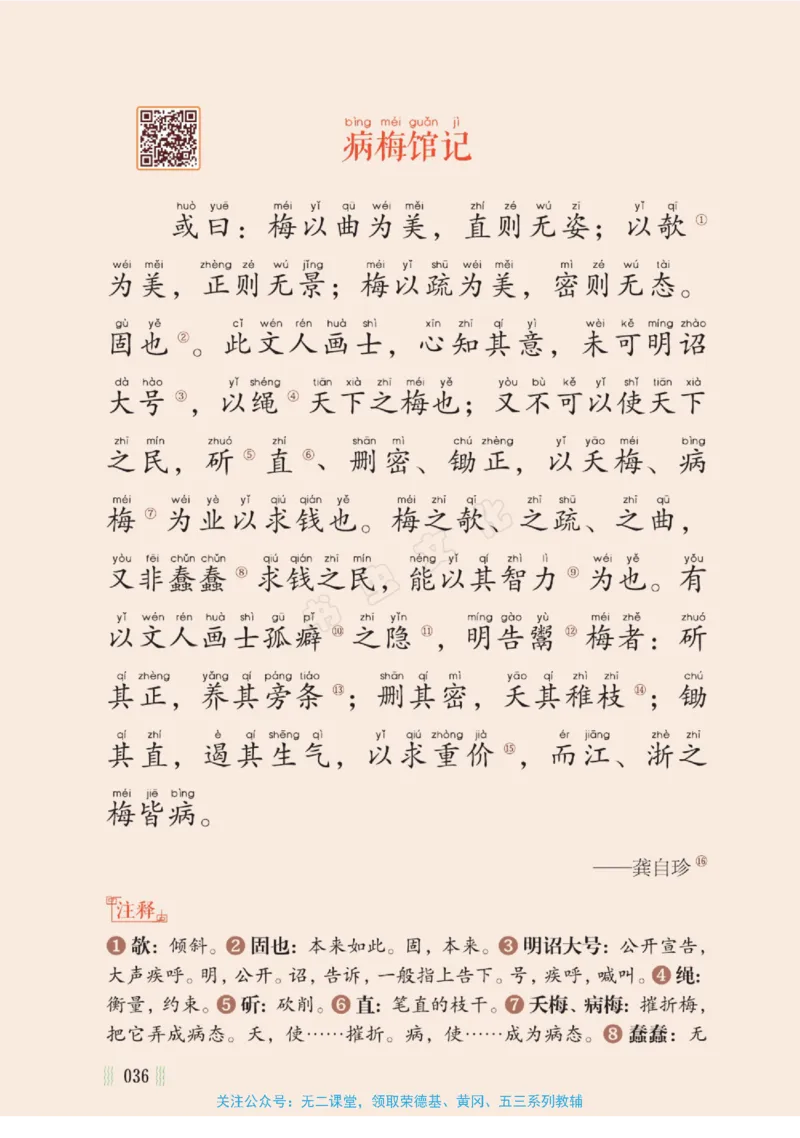 bìng méi guǎn jì
病梅馆记
huò yuē méi yǐ qū wéi měi zhí zé wú zī yǐ qī
或曰：梅以曲为美，直则无姿；以欹①
wéi měi zhèng zé wú jǐng méi yǐ shū wéi měi mì zé wú tài
为美，正则无景；梅以疏为美，密则无态。
gù yě cǐ wén rén huà shì xīn zhī qí yì wèi kě míng zhào
固也②。此文人画士，心知其意，未可明诏
dà hào yǐ shéng tiān xià zhī méi yě yòu bù kě yǐ shǐ tiān xià
大号③，以绳④天下之梅也；又不可以使天下
zhī mín zhuó zhí shān mì chú zhèng yǐ yāo méi bìng
之民，斫⑤直⑥、删密、锄正，以夭梅、病
méi wéi yè yǐ qiú qián yě méi zhī qī zhī shū zhī qū
梅⑦为业以求钱也。梅之欹、之疏、之曲，
yòu fēi chǔn chǔn qiú qián zhī mín néng yǐ qí zhì lì wéi yě yǒu
又非蠢蠢⑧求钱之民，能以其智力⑨为也。有
yǐ wén rén huà shì gū pǐ zhī yǐn míng gào yù méi zhě zhuó
以文人画士孤癖⑩之隐⑪，明告鬻⑫梅者：斫
qí zhèng yǎng qí páng tiáo shān qí mì yāo qí zhì zhī chú
其正，养其旁条⑬；删其密，夭其稚枝⑭；锄
qí zhí è qí shēng qì yǐ qiú zhòng jià ér jiāng zhè zhī
其直，遏其生气，以求重价⑮，而江、浙之
méi jiē bìng
梅皆病。
——龚自珍⑯
注释
❶ 欹：倾斜。❷ 固也：本来如此。固，本来。❸ 明诏大号：公开宣告，
大声疾呼。明，公开。诏，告诉，一般指上告下。号，疾呼，喊叫。❹ 绳：
衡量，约束。❺ 斫：砍削。❻ 直：笔直的枝干。❼ 夭梅、病梅：摧折梅，
把它弄成病态。夭，使……摧折。病，使……成为病态。❽ 蠢蠢：无
036
关注公众号：无二课堂，领取荣德基、黄冈、五三系列教辅